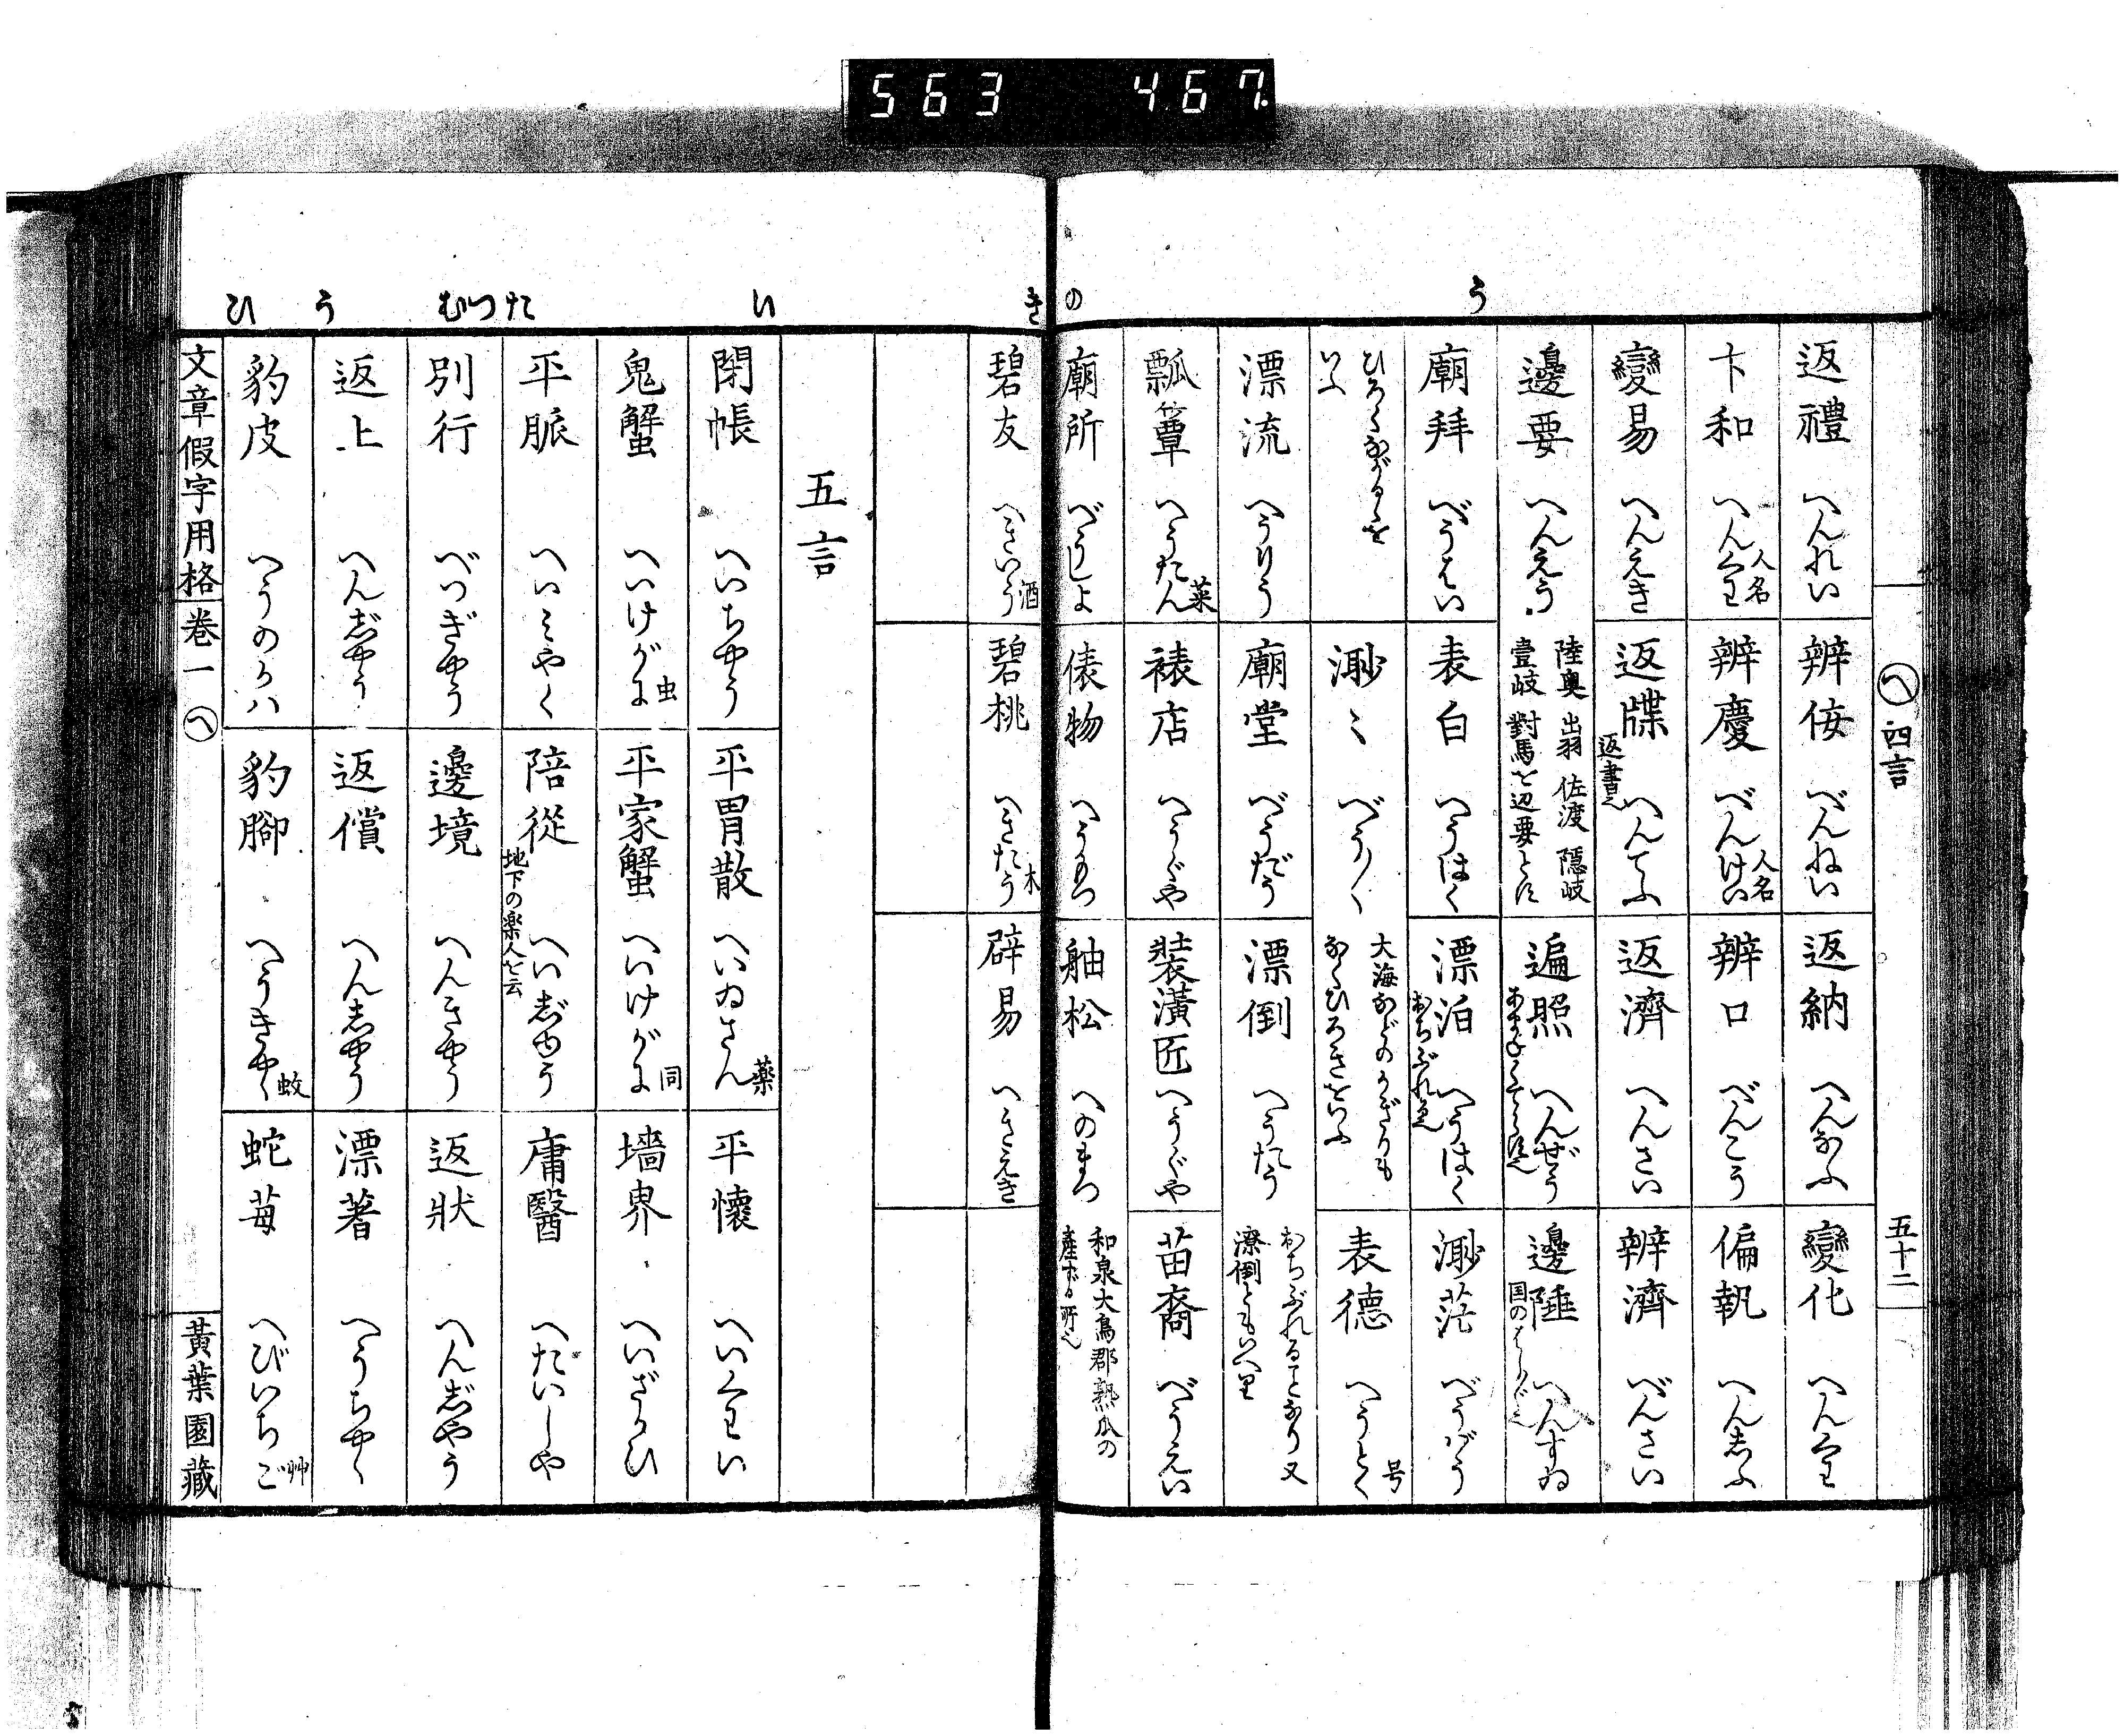 563 467
う
の
へ 四言
五十二
返禮 へんれい
辨侫 べんねい
返納 へんなふ
變化 へんくわ
卞和 へんくわ 人名
辨慶 べんけい 人名
辨口 べんこう
偏執 へんしふ
變易 へんえき
返牒 返書也 へんてふ
返濟 へんさい
辨濟 べんさい
邊要 へんえう
陸奥 出羽 佐渡 隠岐
壹岐 對馬を辺要といふ
遍照 へんぜう
邊陲 へんすゐ
廟拜 べうはい
表白 へうはく
漂泊 おちぶれ也 へうはく
渺茫 べうばう
ひろくながるゝを
いふ
渺〻 べう〳〵
大海などのかぎりも
なくひろきをいふ
表德 へうとく 号
漂流 へうりう
廟堂 べうだう
漂倒 へうたう
おちぶれることなり又
潦倒ともいへり
瓢簟 へうたん 菜
裱店 へうぐや
裝潢匠 へうぐや
苗裔 べうえい
廟所 べうしよ
俵物 へうもつ
舳松 へのまつ
和泉大鳥郡熟瓜の
産する所也
き
い
たつむ
う
ひ
碧友 へきいう 酒
碧桃 へきたう 木
辟易 へきえき
五言
閉帳 へいちやう
平胃散 へいゐさん 藥
平懷 へいくわい
鬼蟹 へいけがに 虫
平家蟹 へいけがに 同
墻界 へいざかひ
平脈 へいみやく
陪從 地下の楽人を云 へいじゆう
庸醫 へたいしや
別行 べつぎやう
邊境 へんきやう
返狀 へんじやう
返上 へんじやう
返償 へんしやう
漂著 へうちやく
豹皮 へうのかは
豹腳 へうきやく 蚊
蛇苺 へびいちご 艸
文章假字用格 卷一 へ
黃葉園藏